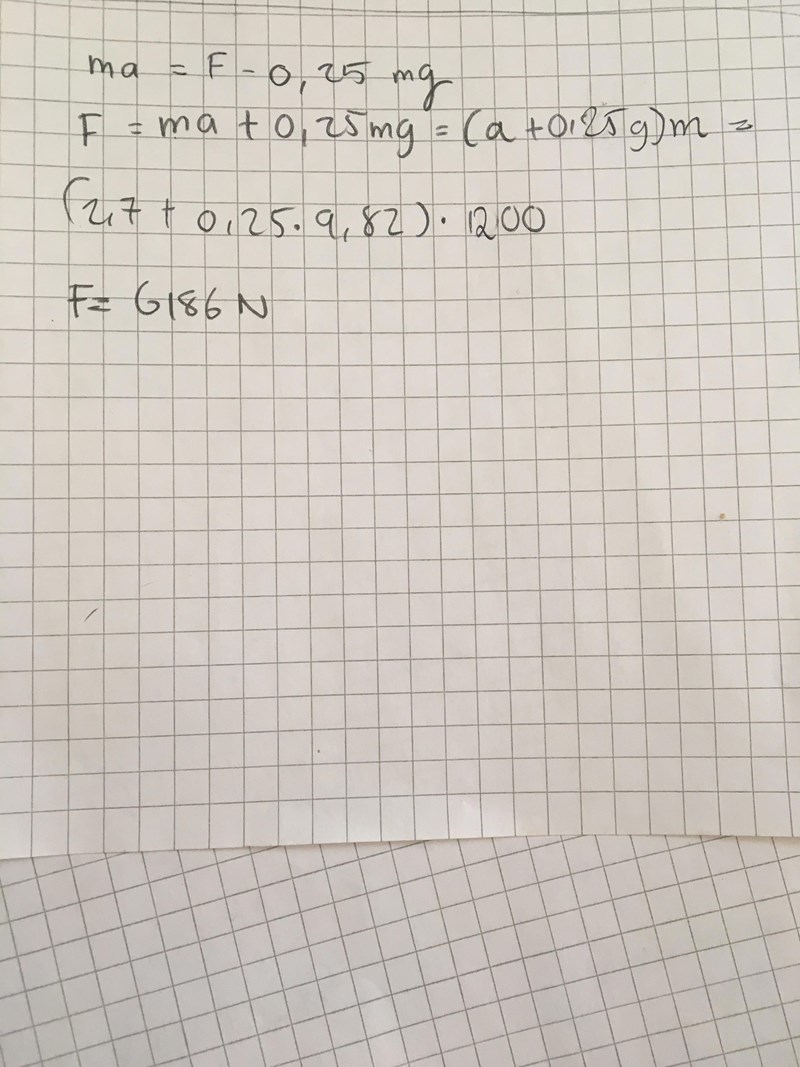 ma = F - 0,25 mg
F = ma + 0,25mg = (a + 0,25g)m =
(2,7 + 0,25. 9,82) · 1200
F= 6186 N